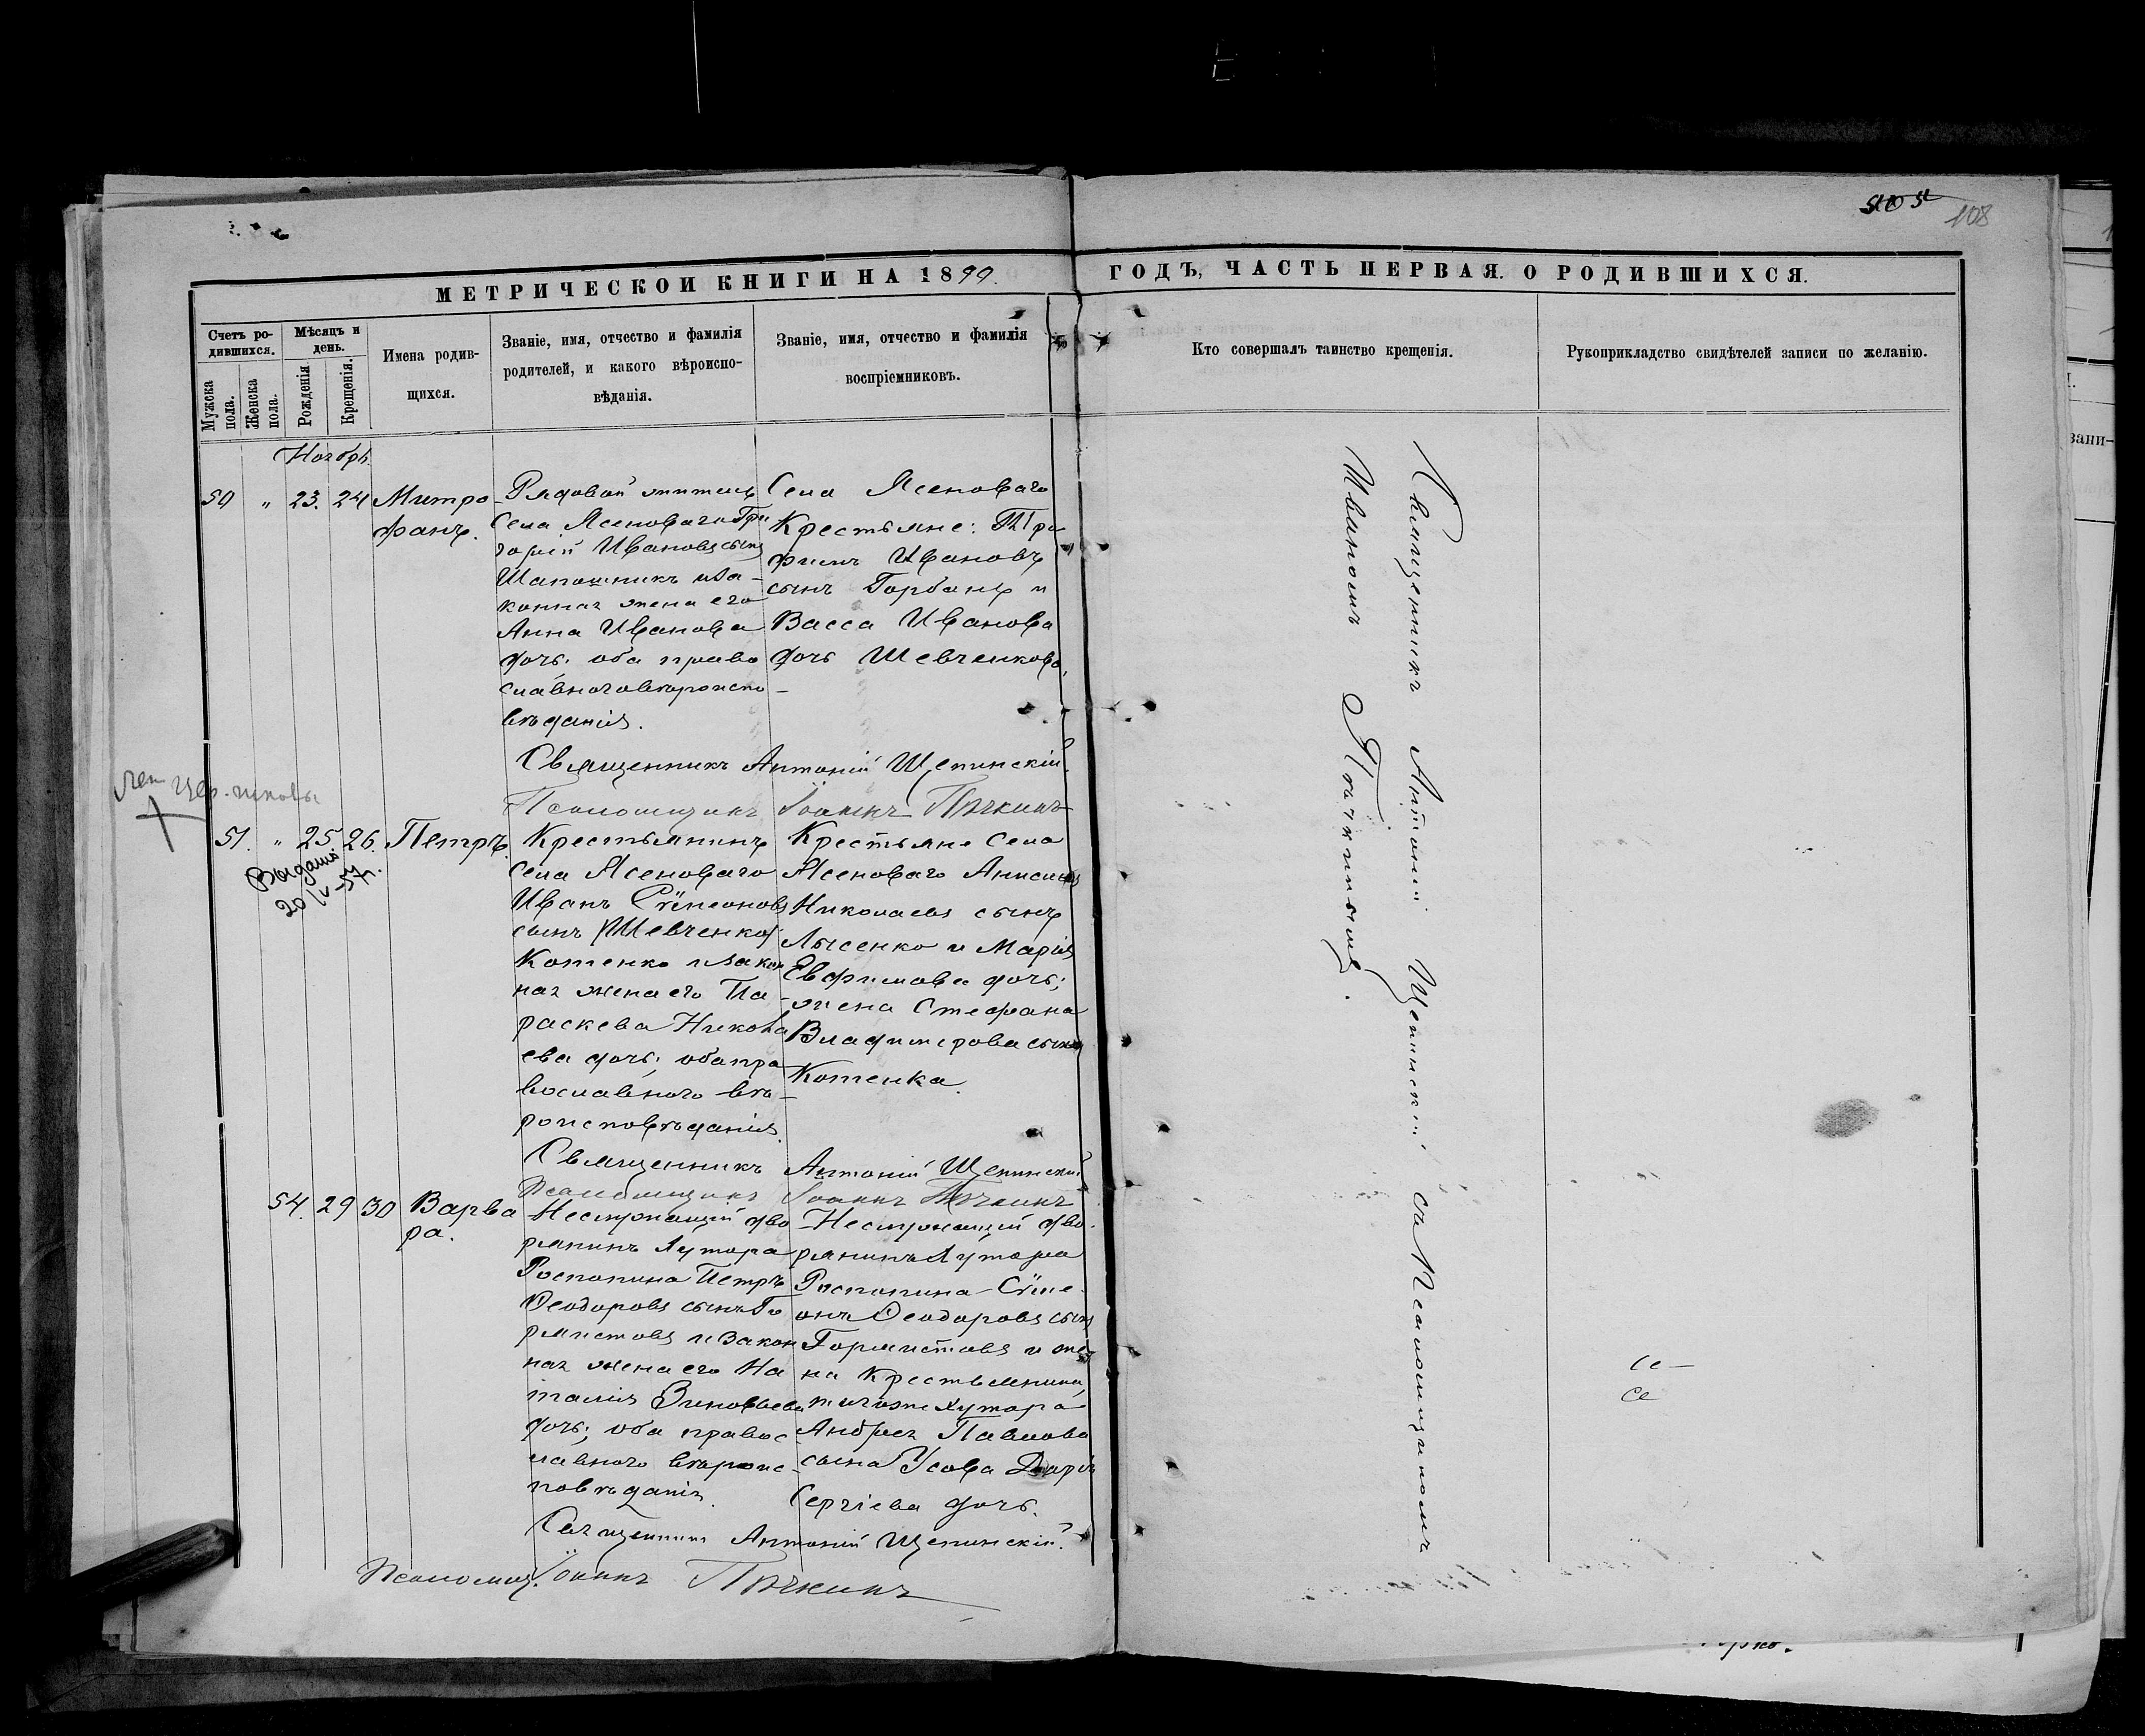 108
МЕТРИЧЕСКОЙ КНИГИ НА 1899.
ГОДЪ, ЧАСТЬ ПЕРВАЯ. О РОДИВШИХСЯ.
Счетъ ро-
дившихся.
Мужска
пола.
Женска
пола.
Мѣсяцъ и
день.
Рожденія
Крещенія.
Имена родив-
щихся.
Званіе, имя, отчество и фамилія
родителей, и какого вѣроиспо-
вѣданія.
Званіе, имя, отчество и фамилія
воспріемниковъ.
Кто совершалъ таинство крещенія.
Рукоприкладство свидѣтелей записи по желанію.
Ноябрь
50 " 23. 24 Митро
фанъ.
Рядовой житель
Села Ясеноваго Гри
горій Ивановъ сынъ
Шапошникъ и за-
конная жена его
Анна Иванова
дочь; оба право
славнаго вѣроиспо-
вѣданія.
Села Ясеноваго
Крестьяне: Тро
фимъ Ивановъ
сынъ Горбань и
Васса Иванова
дочь Шевченкова.
Священникъ Антоній Щепинскій.
Псаломщикъ Іоаннъ Пячкинъ
51. " 25 26. Петръ.
Выдано
20/IV-57г.
Крестьянинъ
Села Ясеноваго
Иванъ Сѷмеоновъ
сынъ (Шевченко)
Котенко и закон
ная жена его Па-
раскева Никола
ева дочь; оба пра
вославнаго вѣ-
роисповѣданія.
Крестьяне Села
Ясеноваго Анисимъ
Николаевъ сынъ
Лысенко и Марія
Евфимова дочь;
жена Стефана
Владимірова сына
Котенка.
Священникъ Антоній Щепинскій
Псаломщикъ Іоаннъ Пячкинъ
54. 29 30 Варва
ра.
Неслужащій дво
рянинъ Хутора
Роспопина Петръ
Ѳеодоровъ сынъ Го
рмистовъ и закон
ная жена его На
талія Зиновьева
дочь; оба правос
лавнаго вѣроис-
повѣданія.
Неслужащій дво-
рянинъ Хутора
Роспопина Сѷме-
онъ Ѳеодоровъ сынъ
Гормистовъ и же-
на Крестьянина
того же Хутора
Андрея Павлова
сына Усова Дарія
Сергіева дочь.
Священникъ Антоній Щепинскій.
Псаломщ. Іоаннъ Пячкинъ
Священникъ Антоній Щепинскій съ Псаломщикомъ
Иваномъ Пячкинымъ.